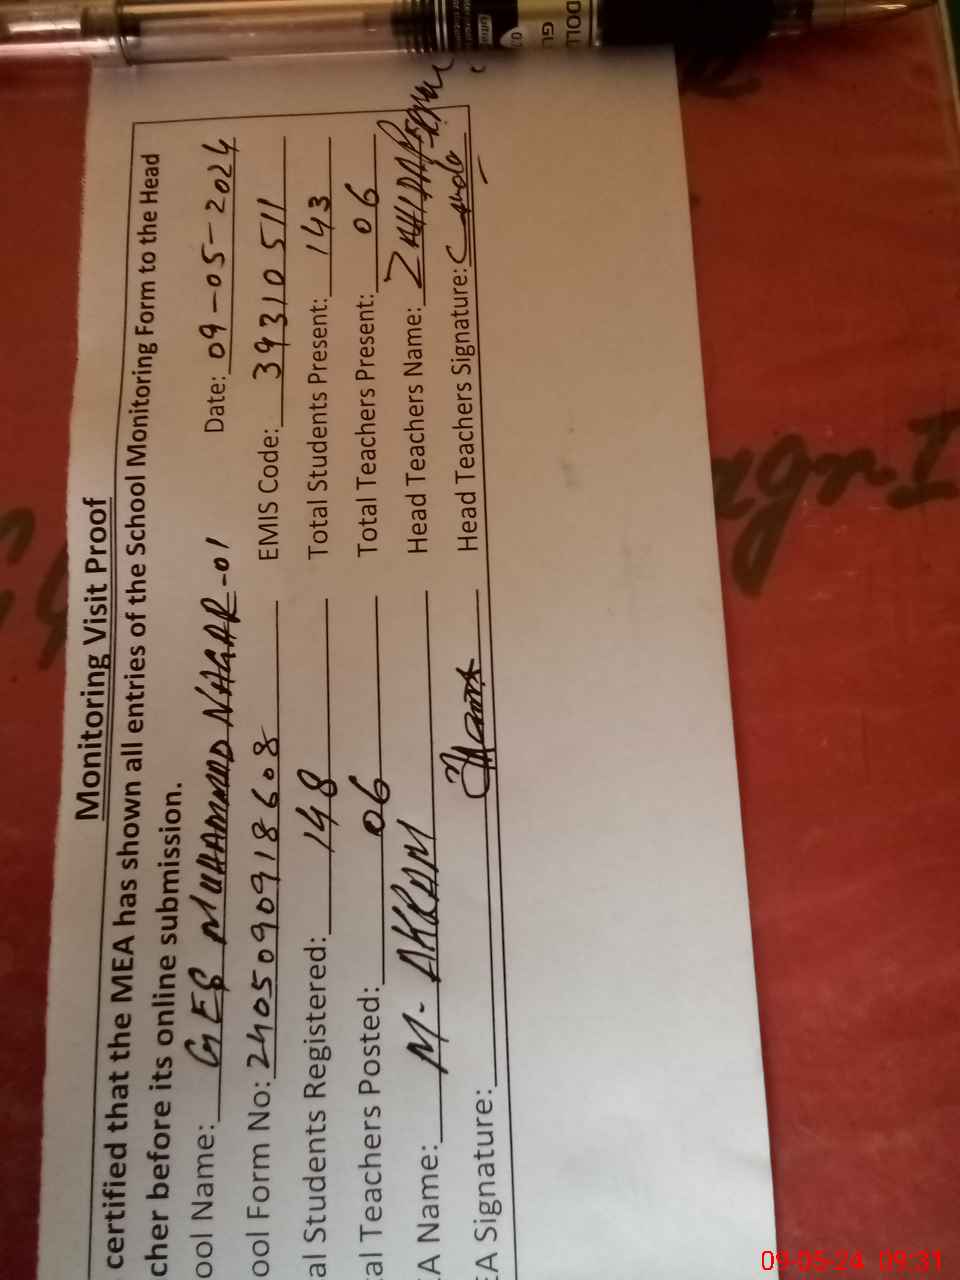 Monitoring Visit Proof
certified that the MEA has shown all entries of the School Monitoring Form to the Head
cher before its online submission.
ool Name: GES MUHAMMAD NAGAR-01 Date: 09-05-2024
ool Form No: 2405090918608 EMIS Code: 39310511
al Students Registered: 148 Total Students Present: 143
al Teachers Posted: 06 Total Teachers Present: 06
EA Name: M. AKRAM Head Teachers Name:
EA Signature: Head Teachers Signature:
DOLL
GL
09-05-24 09:31